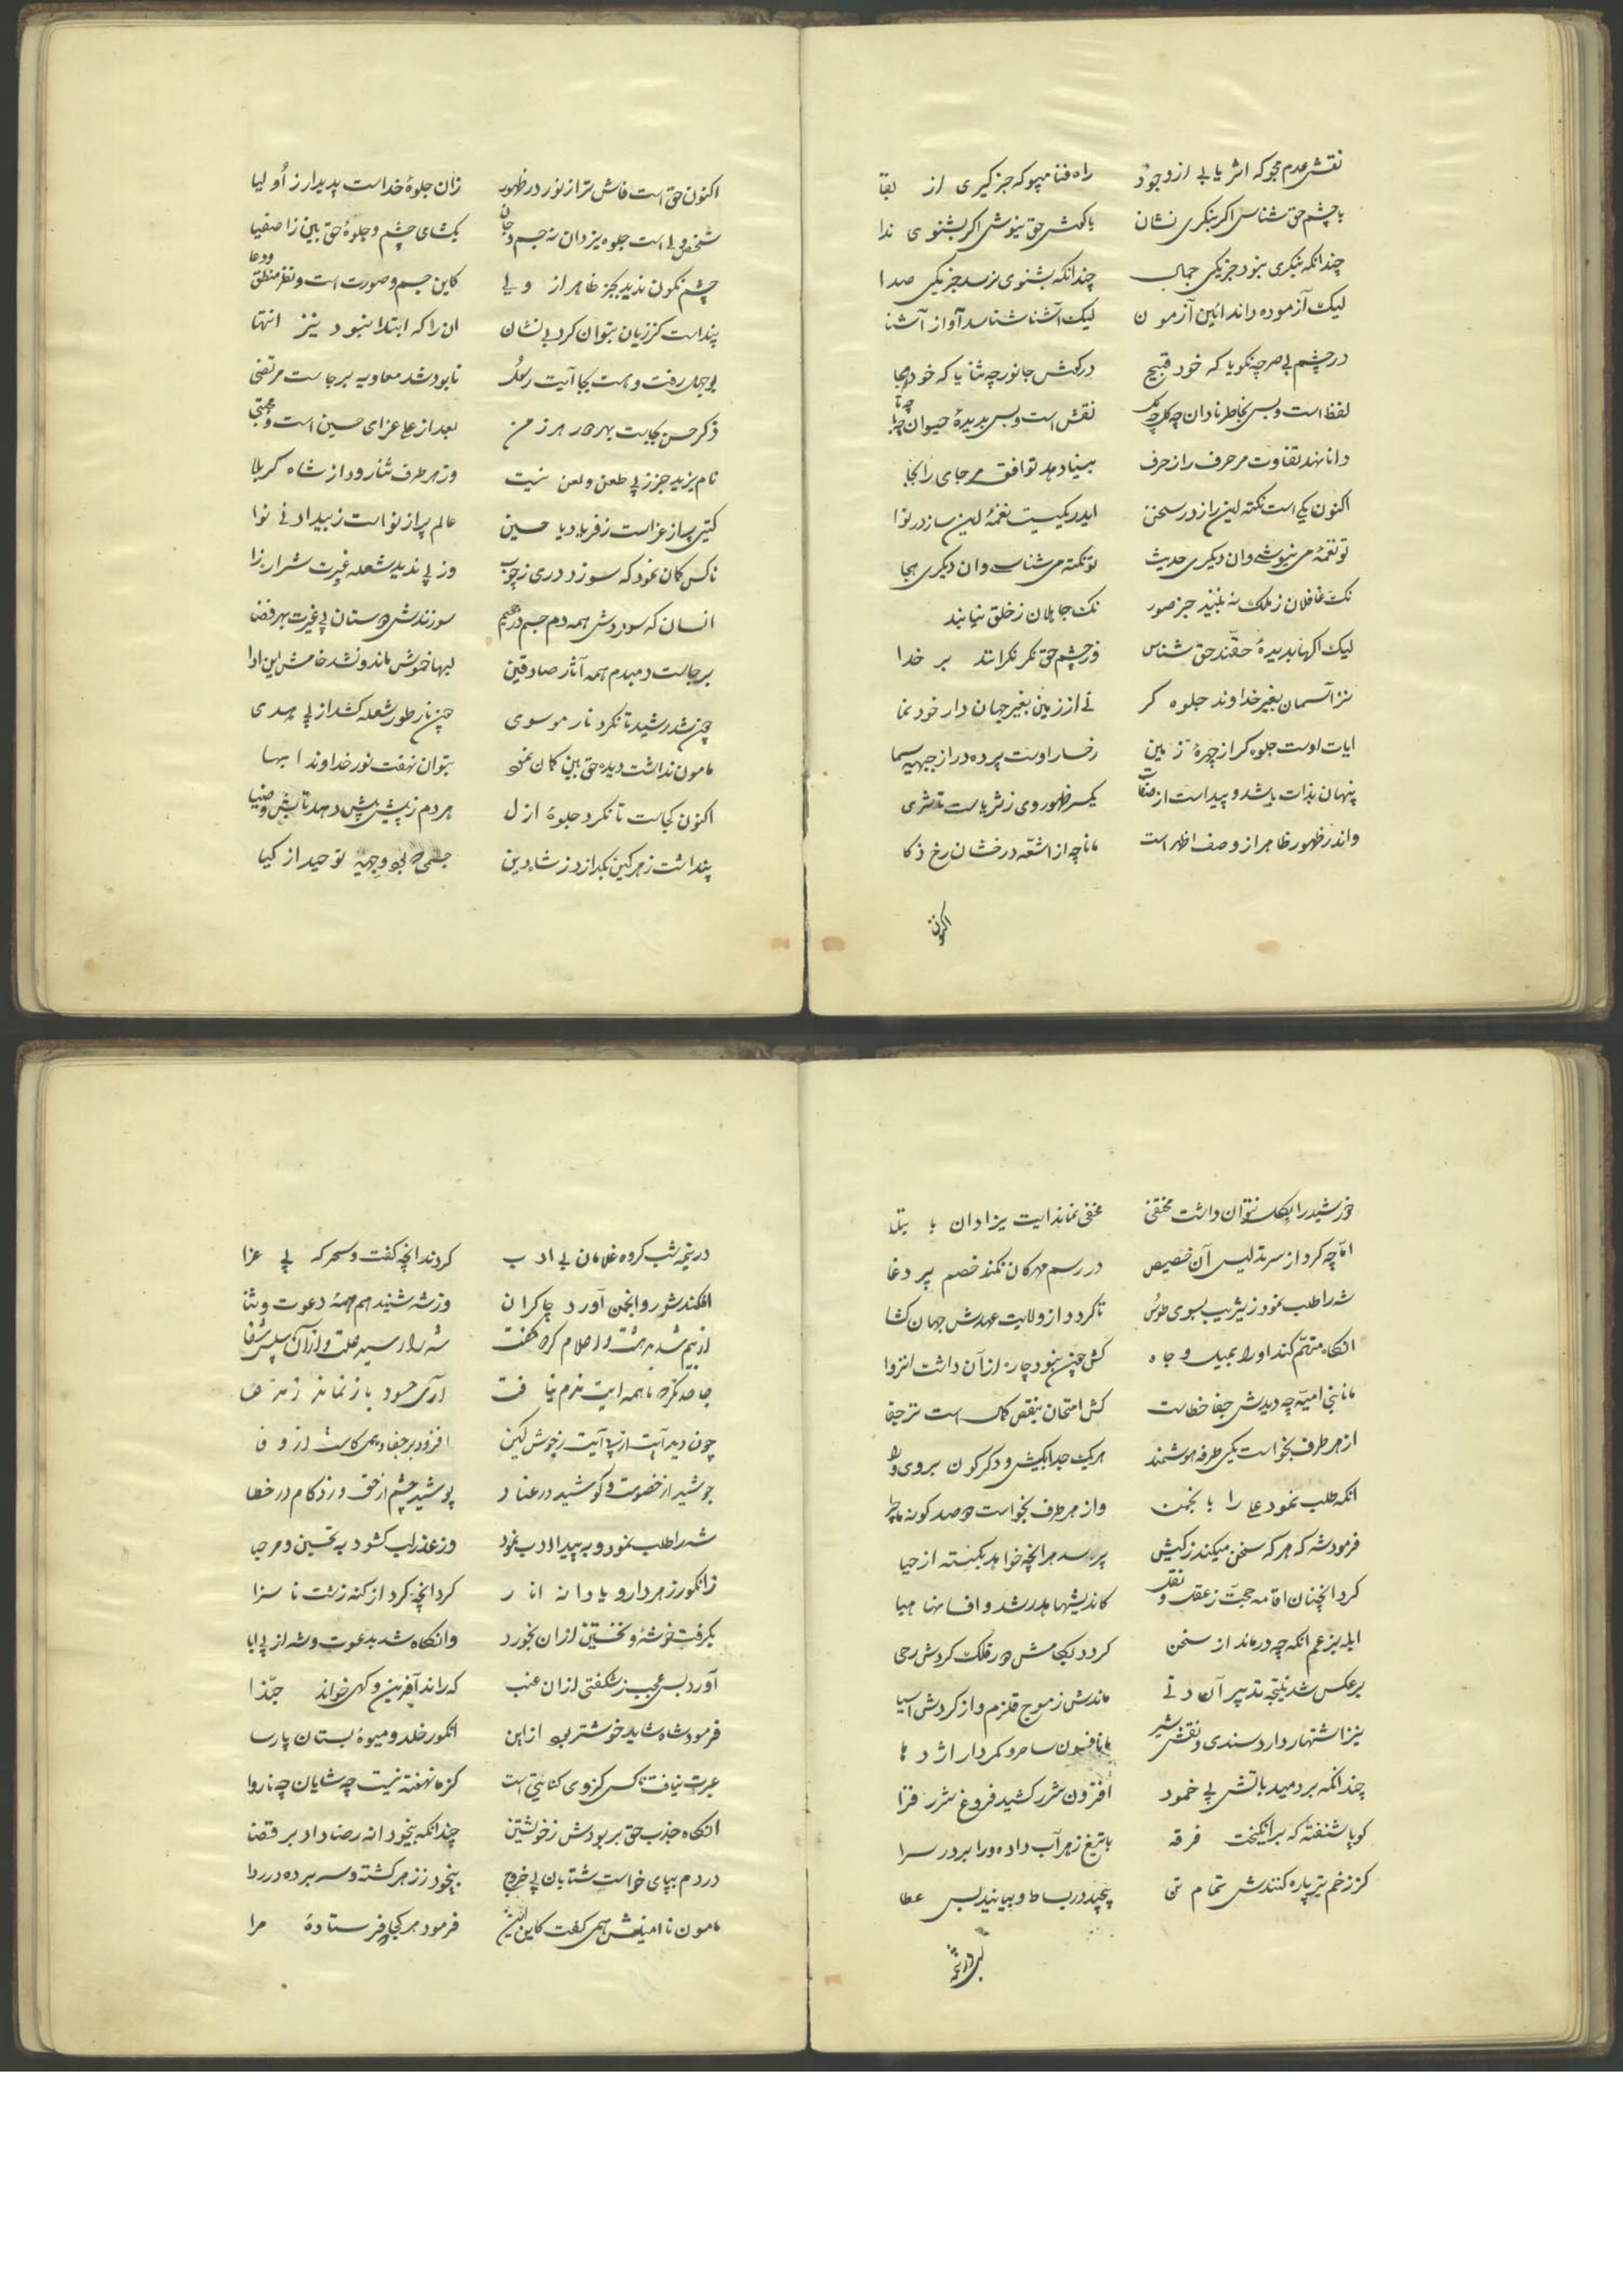 نقش عدم مجو که اثر یابی از وجود راه فنا مپو که خبر گیری از بقا
با چشم حق شناس اگر بنگری نشان با گوش حق نیوش اگر بشنوی ندا
چندانکه بنگری نبود جز یکی جمال چندانکه بشنوی نرسد جز یکی صدا
لیک آزموده داند آئین آزمون لیک آشنا شناسد آواز آشنا
در چشم بی بصر چه نکو یا که خود قبیح در گوش جانور چه ثنا یا که خود هجا
لفظ است و بس بخاطر نادان چه کل چه نقش است و بس بدیدهٔ حیوان چه
دانا نهد تفاوت مر حرف را ز حرف بینا دهد توافق مر جای را بجا
اکنون یکی است نکته این راز در سخن ایدر یکیست نغمهٔ این ساز در نوا
تو نغمه می نیوشی وان دیگری حدیث تو نکته می شناسی وان دیگری هجا
نک غافلان ز ملک نه بینند جز صور نک جاهلان ز خلق نیابند
لیک آگها بدیدهٔ حقند حق شناس وز چشم حق نگر نگرانند بر خدا
نز آسمان بغیر خداوند جلوه گر نی از زمین بغیر جهان دار خود نما
ایات اوست جلوه گر از چهرهٔ زمین رخسار اوست پرده در از جبههٔ سما
پنهان بذات باشد و پیداست از صفات یکسر ظهور وی ز ثریاست تا ثری
واندر ظهور ظاهر از وصف اظهر است مانا چه از اشعّه درخشان رخ ذکا
اکنون
اکنون حق است فاش تر از نور در ظهور زان جلوهٔ خداست پدیدار ز اولیا
شخص ولی است جلوه یزدان نه جسم و جان بگشای چشم و جلوهٔ حق بین ز اصفیا
چشم نگون ندید بجز ظاهر از ولی کاین جسم و صورت است و نغز منطق و دعا
پنداست کز زیان بتوان کرد بی نشان ان را که ابتدا نبود نیز انتها
بوجهل رفت و هست بجا آیت رسول نابود شد معاویه برجاست مرتضی
ذکر حسن بجاست بهر در هر زمن بعد از علی عزای حسین است و مجتبی
نام یزید جز ز پی طعن و لعن نیست وز هر طرف ثنا رود از شاه کربلا
گیتی پر از عزاست ز فریاد یا حسین عالم پر از نواست ز بیداد نی نوا
ناکس گمان نمود که سوزد دری ز چوب وز پی ندید شعله غیرت شراره زا
انسان که سوزدش همه دم جسم در جحیم سوزندش دوستان پی غیرت بهر فضا
برجاست دمبدم همه آثار صادقین لبها خموش ماند و نشد خامش این ادا
چون شد رشید تا نگرد نار موسوی چون نار طور شعله کشد از پی هدی
مامون نداشت دیده حق بین گمان نمود بتوان نهفت نور خداوند ابها
اکنون کجاست تا نگرد جلوهٔ ازل هر دم ز پیش بیش دهد تابش و ضیا
پنداشت زهر کین بگدازد ز شاه دین جسمی که بود وجهه توحید از کیا
خورشید را بگل نتوان داشت مختفی مخفی نماند ایت یزدان با بتلا
امّا چه کرد از سر تدلیس آن خصیص در رسم مهر کان نکند خصم پر دغا
شه را طلب نمود ز یثرب بسوی طوس تا گردد از ولایت عهدش جهان گشا
انگاه متهّم کند او را بمیل و جاه کش چنین نبود چاره از آن داشت انزوا
مانا بنی امیّه چه دیدش جفا خطاست کش امتحان بنقص کمال است نز جفا
از هر طرف بخواست یکی طرفه هوشمند هر یک جدا بکیش و دگرگون بروی و
انگه طلب نمود علی را بانجمن و از هر طرف بخواست دو صد گونه ماجرا
فرمود شه که هر که سخن میکند ز کیش پرسد هر انچه خواهد بگسسته از حیا
کرد انچنان اقامه حجّت ز عقل و نقل کاندیشها هدر شد و افسانها هبا
ابله بزعم انکه چه درماند از سخن گردد بکامش در فلک گردش رحی
بر عکس شد نتیجه تدبیر آن دنی ماندش ز موج قلزم و از گردش آسیا
نیز اشتهار دارد سندی و نقش شیر مانا فسون ساحر و کردار اژدها
چندانکه بر دمید باتش پی خمود افزون شرر کشید فروغ شرر فزا
گویا شنفته که برانگیخت فرقه با تیغ زهر آب داده ورا بر در سرا
کز زخم تیز پاره کنندش تمام تن پیچند در بساط و بیابند بس عطا
در نیمه شب گروه غلامان بی ادب کردند انچه گفت و سحرگه پی عزا
افکند شور و انجمن آورد چاکران وز شه شنید همهمهٔ دعوت و ثنا
آری حسود باز نماند
چون دید آیت از پی آیت ز خوش کین افزود بر جفا و همی کاست از وفا
جوشید از خصومت و کوشید در عناد پوشید چشم از حق و زد کام در خطا
شه را طلب نمود و به بیداد لب نمود وز عذر لب گشود به تحسین و مرحبا
ز انگور زهر دار و یا دانه انار کرد انچه کرد از کنه زشت ناسزا
بگرفت خوشهٔ و نخستین از آن بخورد وانگاه شد بدعوت و شه از پی ابا
آورد بس عجیب ز شگفتی از ان عنب که راند آفرین و گهی خواند حبّذا
فرمود شاه شاید خوشتر بود از این انگور خلد و میوهٔ بستان پارسا
عبرت نیافت ناکس کز وی کنایتی است کز ما نهفته نیست چه شایان چه ناروا
انگاه جذب حق بربودش ز خویشتن چندانکه بیخودانه رضا داد بر قضا
در دم بپای خواست شتابان پی خروج بیخود ز زهر گشته و سر برده در ردا
مامون نا امینش همی گفت کاین فرمود هر کجا که فرستادهٔ مرا